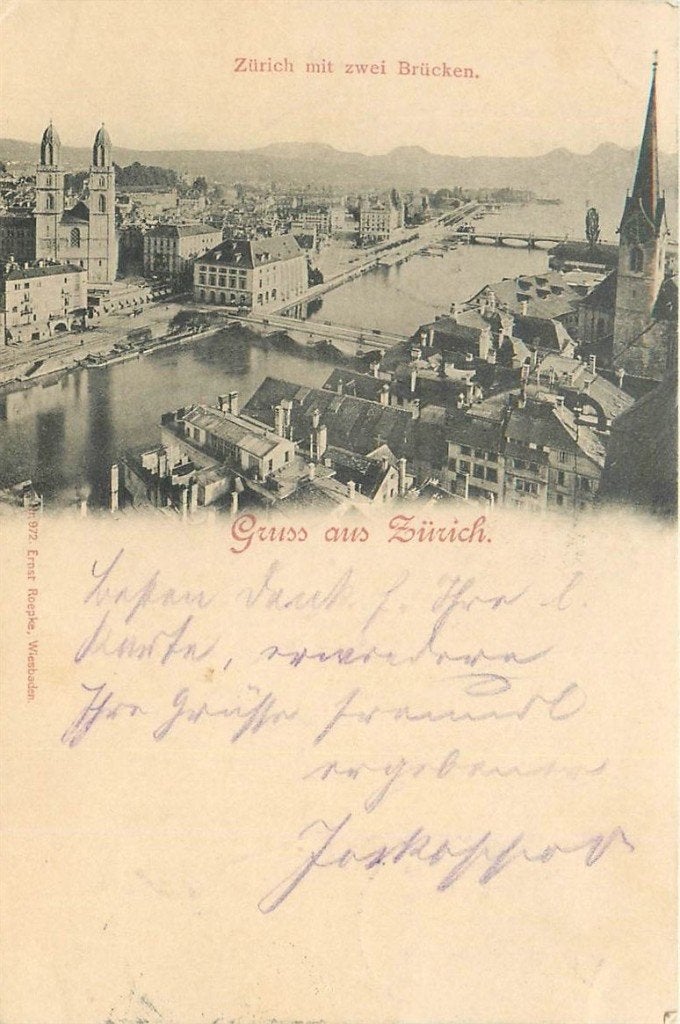 Zürich mit zwei Brücken.
Gruss aus Zürich.
Nr. 972. Ernst Roepke, Wiesbaden.
besten Dank f. Ihre l.
Karte, erwiedere
Ihre Grüsse freundl
ergebener